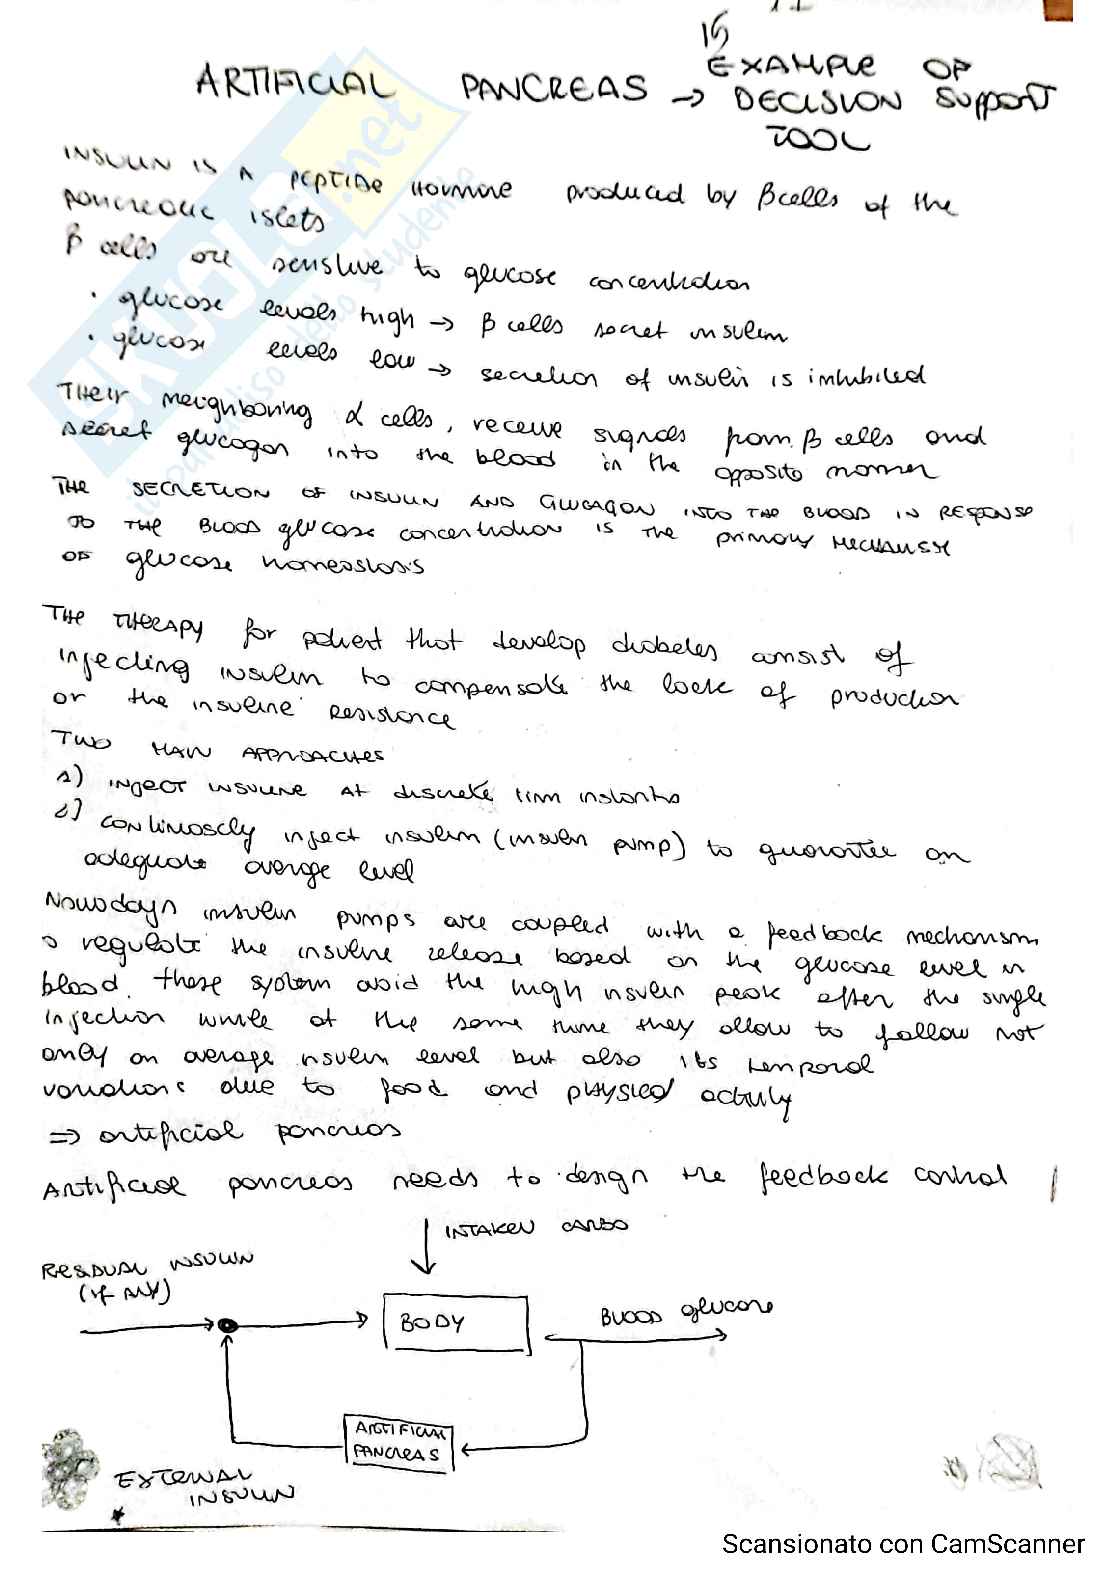 15
ARTIFICIAL PANCREAS → EXAMPLE OF
DECISION SUPPORT
TOOL
INSULIN IS A PEPTIDE HORMONE produced by β cells of the
pancreatic islets
β cells are sensitive to glucose concentration
• glucose levels high → β cells secret insulin
• glucose levels low → secretion of insulin is inhibited
Their neighboring α cells, receive signals from β cells and
secret glucagon into the blood in the opposite manner
THE SECRETION OF INSULIN AND GLUCAGON INTO THE BLOOD IN RESPONSE
TO THE BLOOD glucose concentration IS THE primary MECHANISM
OF glucose homeostasis
THE THERAPY for patient that develop diabetes consist of
injecting insulin to compensate the lack of production
or the insuline resistance
TWO MAIN APPROACHES
1) INJECT INSULINE AT discrete time instants
2) continuosly inject insulin (insulin pump) to guarantee an
adequate average level
Nowadays insulin pumps are coupled with a feedback mechanism
to regulate the insuline release based on the glucose level in
blood. These system avoid the high insulin peak after the single
injection while at the same time they allow to follow not
only an average insulin level but also its temporal
variations due to food and physical activity
⇒ artificial pancreas
Artificial pancreas needs to design the feedback control
INTAKEN CARBO
RESIDUAL INSULIN
(if ANY)
BODY
BLOOD glucose
ARTIFICIAL
PANCREAS
EXTERNAL
INSULIN
*
SKUOLA.net
il paradiso dello studente
Scansionato con CamScanner